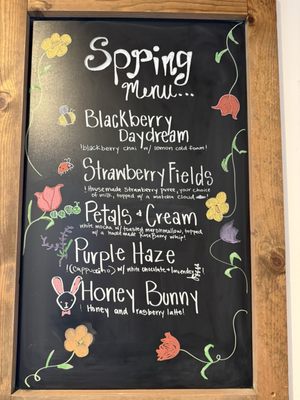 Spring
Menu...
Blackberry
Daydream
! blackberry chai w/ lemon cold foam!
Strawberry Fields
! Housemade Strawberry puree, your choice
of milk, topped w/ a matcha cloud
Petals & Cream
white mocha w/ toasted marshmallow, topped
w/ a hand made Rose Berry whip!
Purple Haze
! (cappuccino) w/ white chocolate + lavender
Honey Bunny
! Honey and raspberry latte!